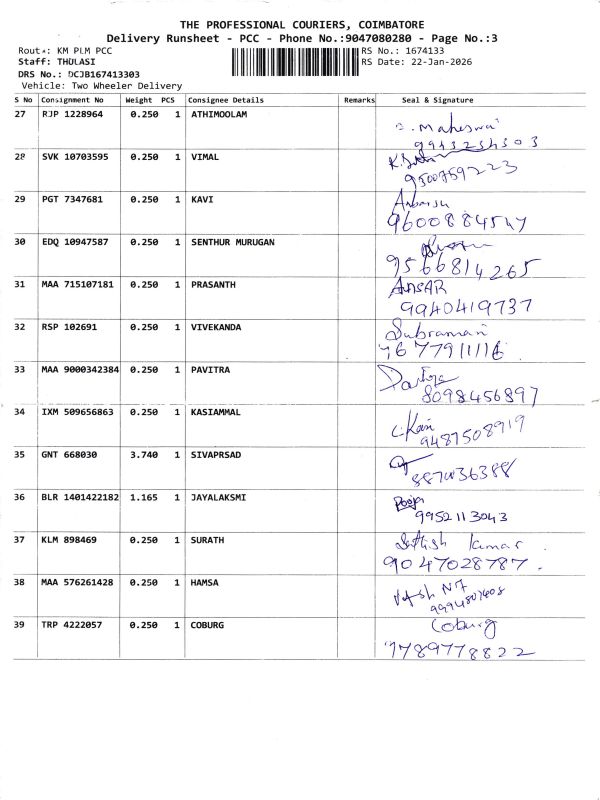 THE PROFESSIONAL COURIERS, COIMBATORE
Delivery Runsheet - PCC - Phone No.:9047080280 - Page No.:3
Route: KM PLM PCC
RS No.: 1674133
Staff: THULASI
RS Date: 22-Jan-2026
DRS No.: DCJB167413303
Vehicle: Two Wheeler Delivery
S No Consignment No Weight PCS Consignee Details Remarks Seal & Signature
27 RJP 1228964 0.250 1 ATHIMOOLAM
Maheswari
28 SVK 10703595 0.250 1 VIMAL
9500759223
29 PGT 7347681 0.250 1 KAVI
9600884547
30 EDQ 10947587 0.250 1 SENTHUR MURUGAN
9566814265
31 MAA 715107181 0.250 1 PRASANTH ANSAR
9940419737
32 RSP 102691 0.250 1 VIVEKANDA Subramani
33 MAA 9000342384 0.250 1 PAVITRA
8098456897
34 IXM 509656863 0.250 1 KASIAMMAL
9487508919
35 GNT 668030 3.740 1 SIVAPRSAD
36 BLR 1401422182 1.165 1 JAYALAKSMI Pooja
9952113043
37 KLM 898469 0.250 1 SURATH Sathish kumar
9047028787.
38 MAA 576261428 0.250 1 HAMSA
39 TRP 4222057 0.250 1 COBURG Coburg
7789778822